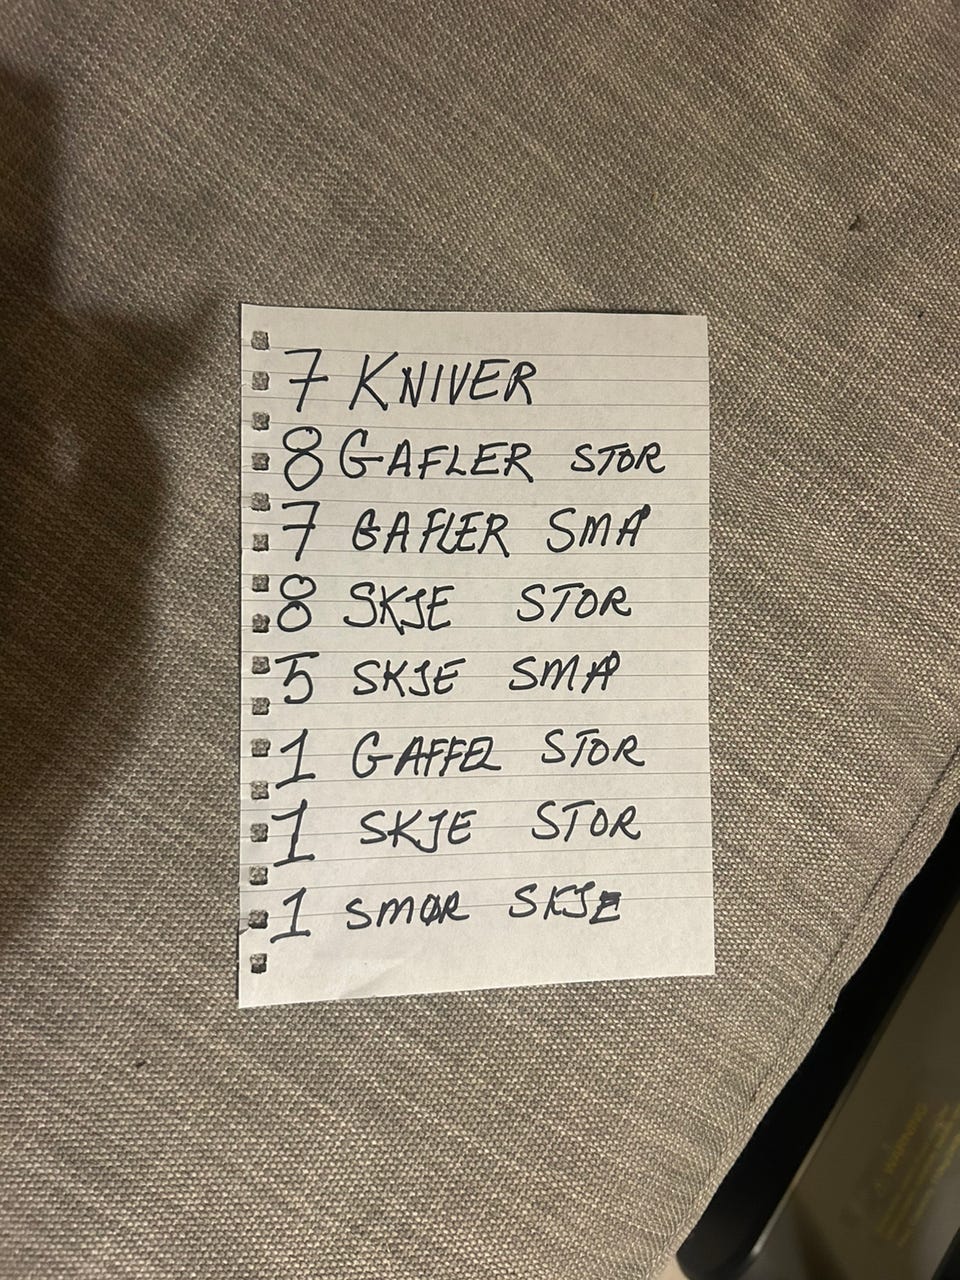 7 KNIVER
8 GAFLER STOR
7 GAFLER SMÅ
8 SKJE STOR
5 SKJE SMÅ
1 GAFFEL STOR
1 SKJE STOR
1 SMØR SKJE